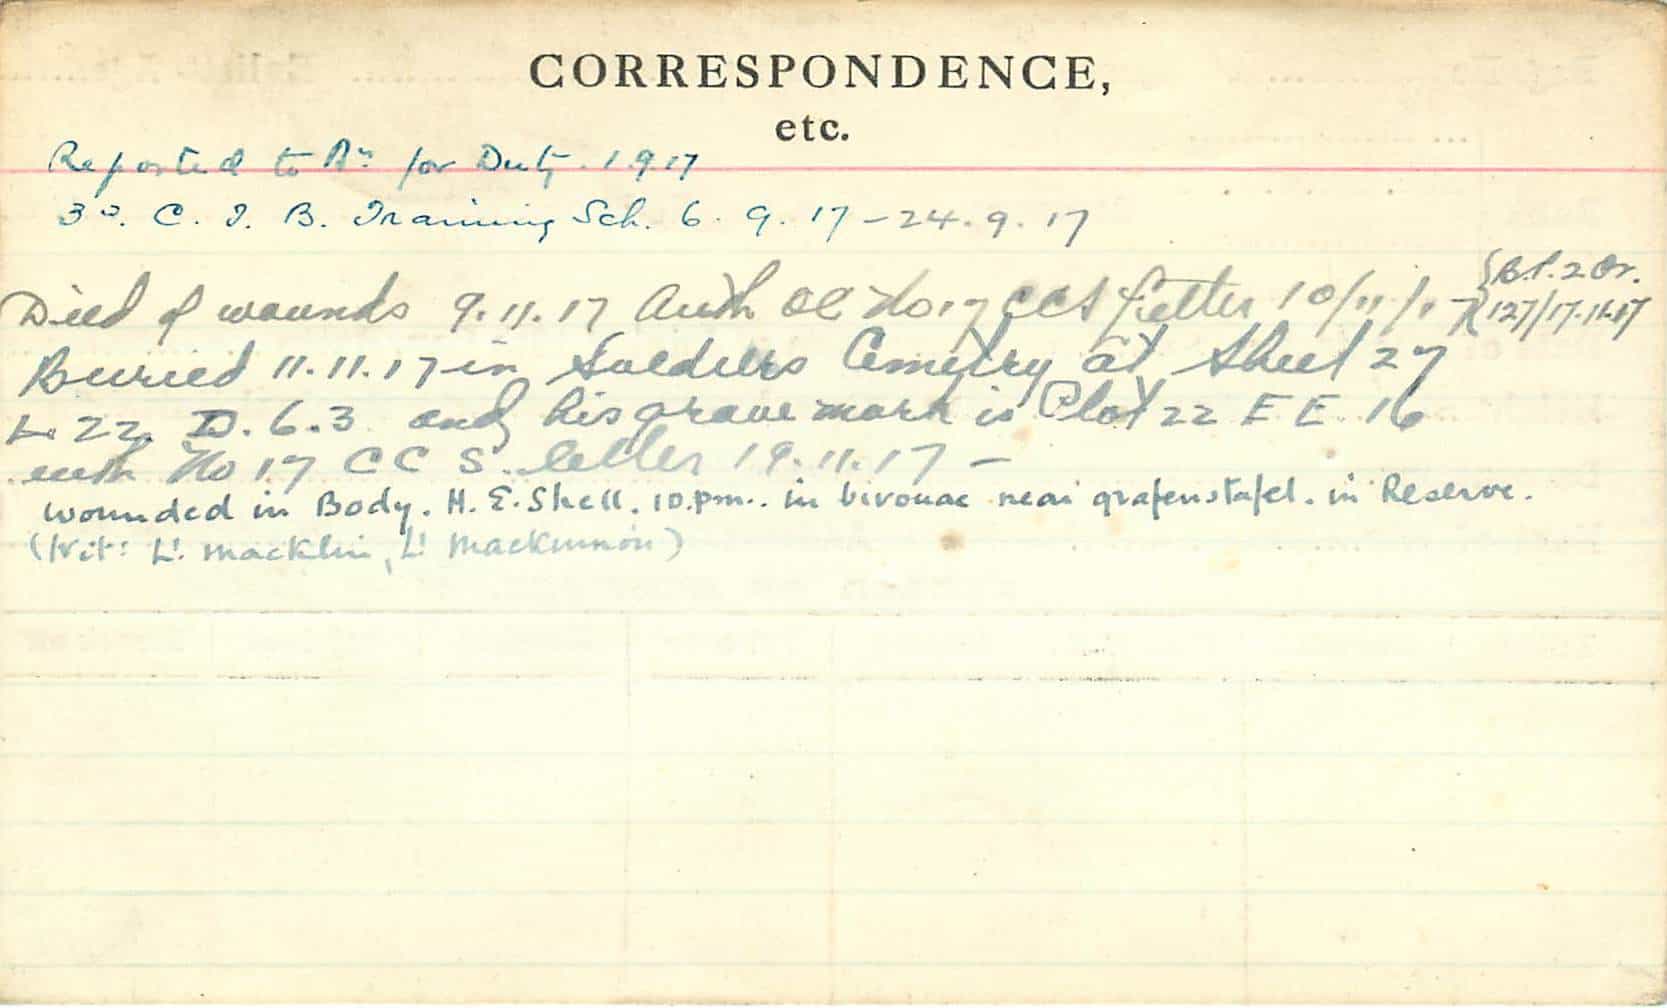 CORRESPONDENCE,
etc.
Reported to Bn for Duty. 1.9.17
3rd. C. I. B. Training Sch. 6. 9. 17 - 24. 9. 17
Died of wounds 9.11.17 Auth OC No 17 CCS letter 10/11/17 {B.P. 2 Or. 127/17.11.17
Buried 11.11.17 in Soldiers Cemetry at Sheet 27
L. 22. D. 6. 3 and his grave mark is Plot 22 E E 16
auth No 17 C C S. letter 19. 11. 17 -
Wounded in Body. H. E. Shell. 10.pm.. in bivouac near grafenstafel. in Reserve.
(Wit: Lt. Macklin, Lt Mackinnon)